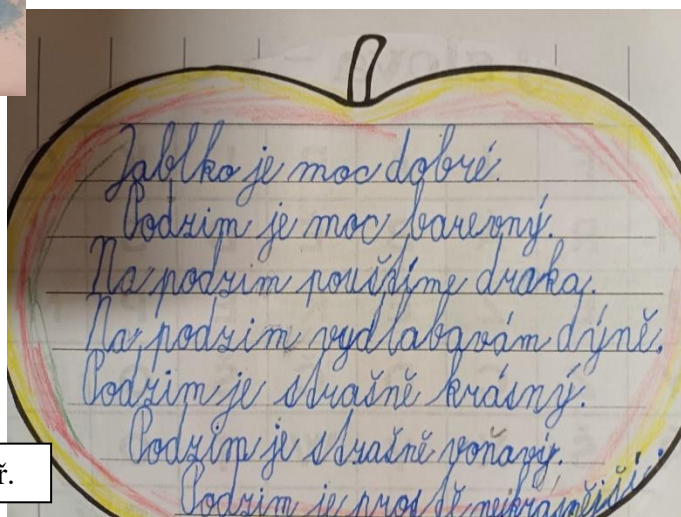 Jablko je moc dobré.
Podzim je moc barevný.
Na podzim pouštíme draka.
Na podzim vydlabavám dýně.
Podzim je strašně krásný.
Podzim je strašně voňavý.
Podzim je prostě nejkrásnější.
ř.